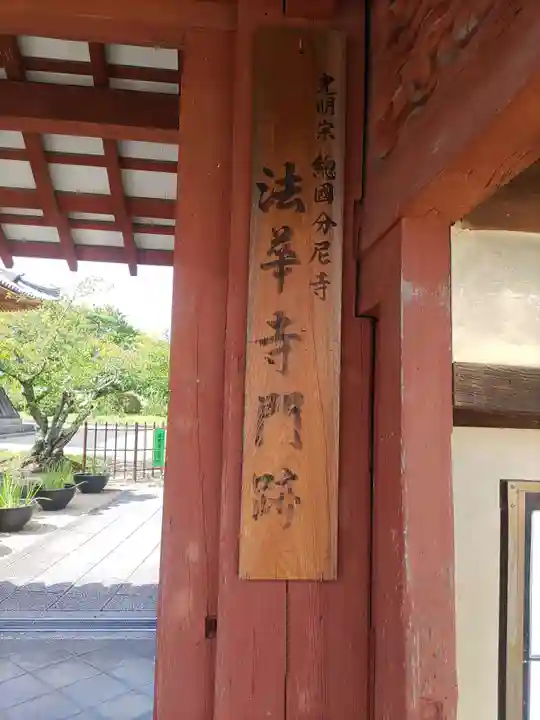 光明宗 總國分尼寺
法華寺門跡